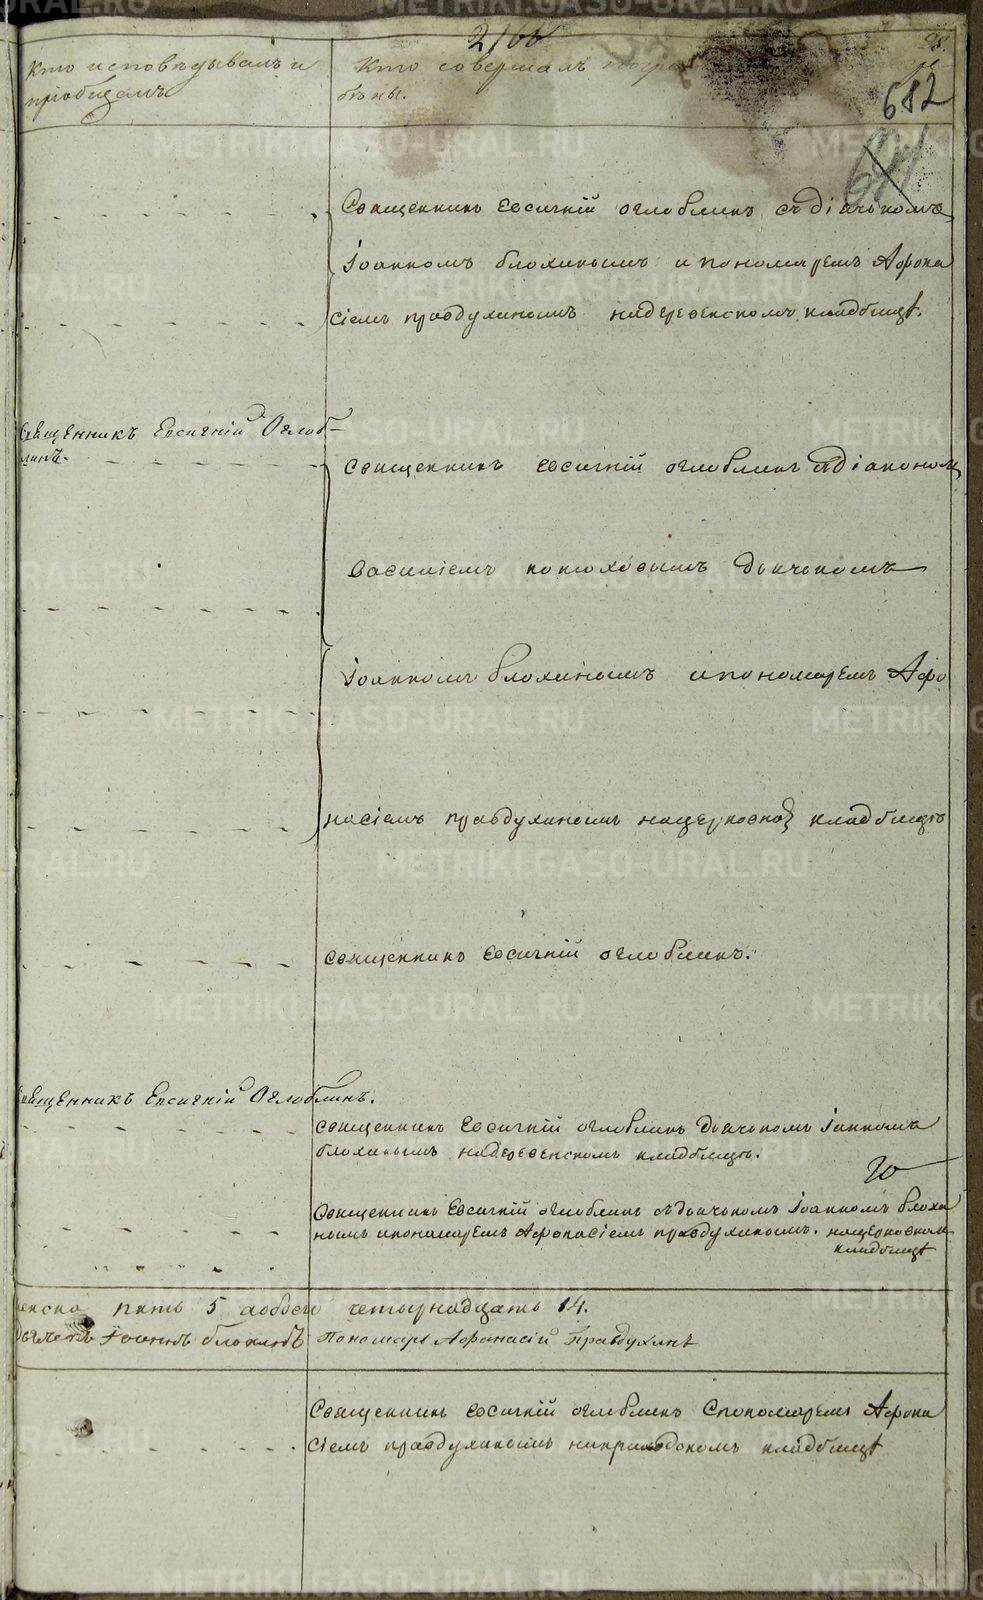 2166
98
Кто исповѣдывалъ и
пріобщалъ
Кто совершалъ погре
бены.
682
Священникъ Евсигній Оглоблинъ съ діячькомъ
Іоанномъ Блохинымъ и пономаремъ Афона
сіемъ Правдухинымъ на деревенскомъ кладбищѣ.
Священникъ Евсигній Оглоб-
линъ.
Священникъ Евсигній Оглоблинъ съ діакономъ
Василіемъ дьячькомъ
Іоанномъ Блохинымъ и пономаремъ Афо
насіемъ Правдухинымъ на церковной кладбищѣ
Священникъ Евсигній Оглоблинъ.
Священникъ Евсигній Оглоблинъ.
Священникъ Евсигній Оглоблинъ дьячькомъ Іанномъ
Блохинымъ на деревенскомъ кладбищѣ.
Священникъ Евсигній Оглоблинъ съ дьячькомъ Іоанномъ Блохи
нымъ и пономаремъ Афонасіемъ Правдухинымъ. на церковномъ
кладбищѣ
женска пять 5 а обоего четырнадцать 14.
Дьячекъ Іоаннъ Блохинъ Пономарь Афанасій Правдухинъ
Священникъ Евсигній Оглоблинъ с пономаремъ Афона
сіемъ Правдухинымъ на приходскомъ кладбищѣ
METRIKI.GASO-URAL.RU